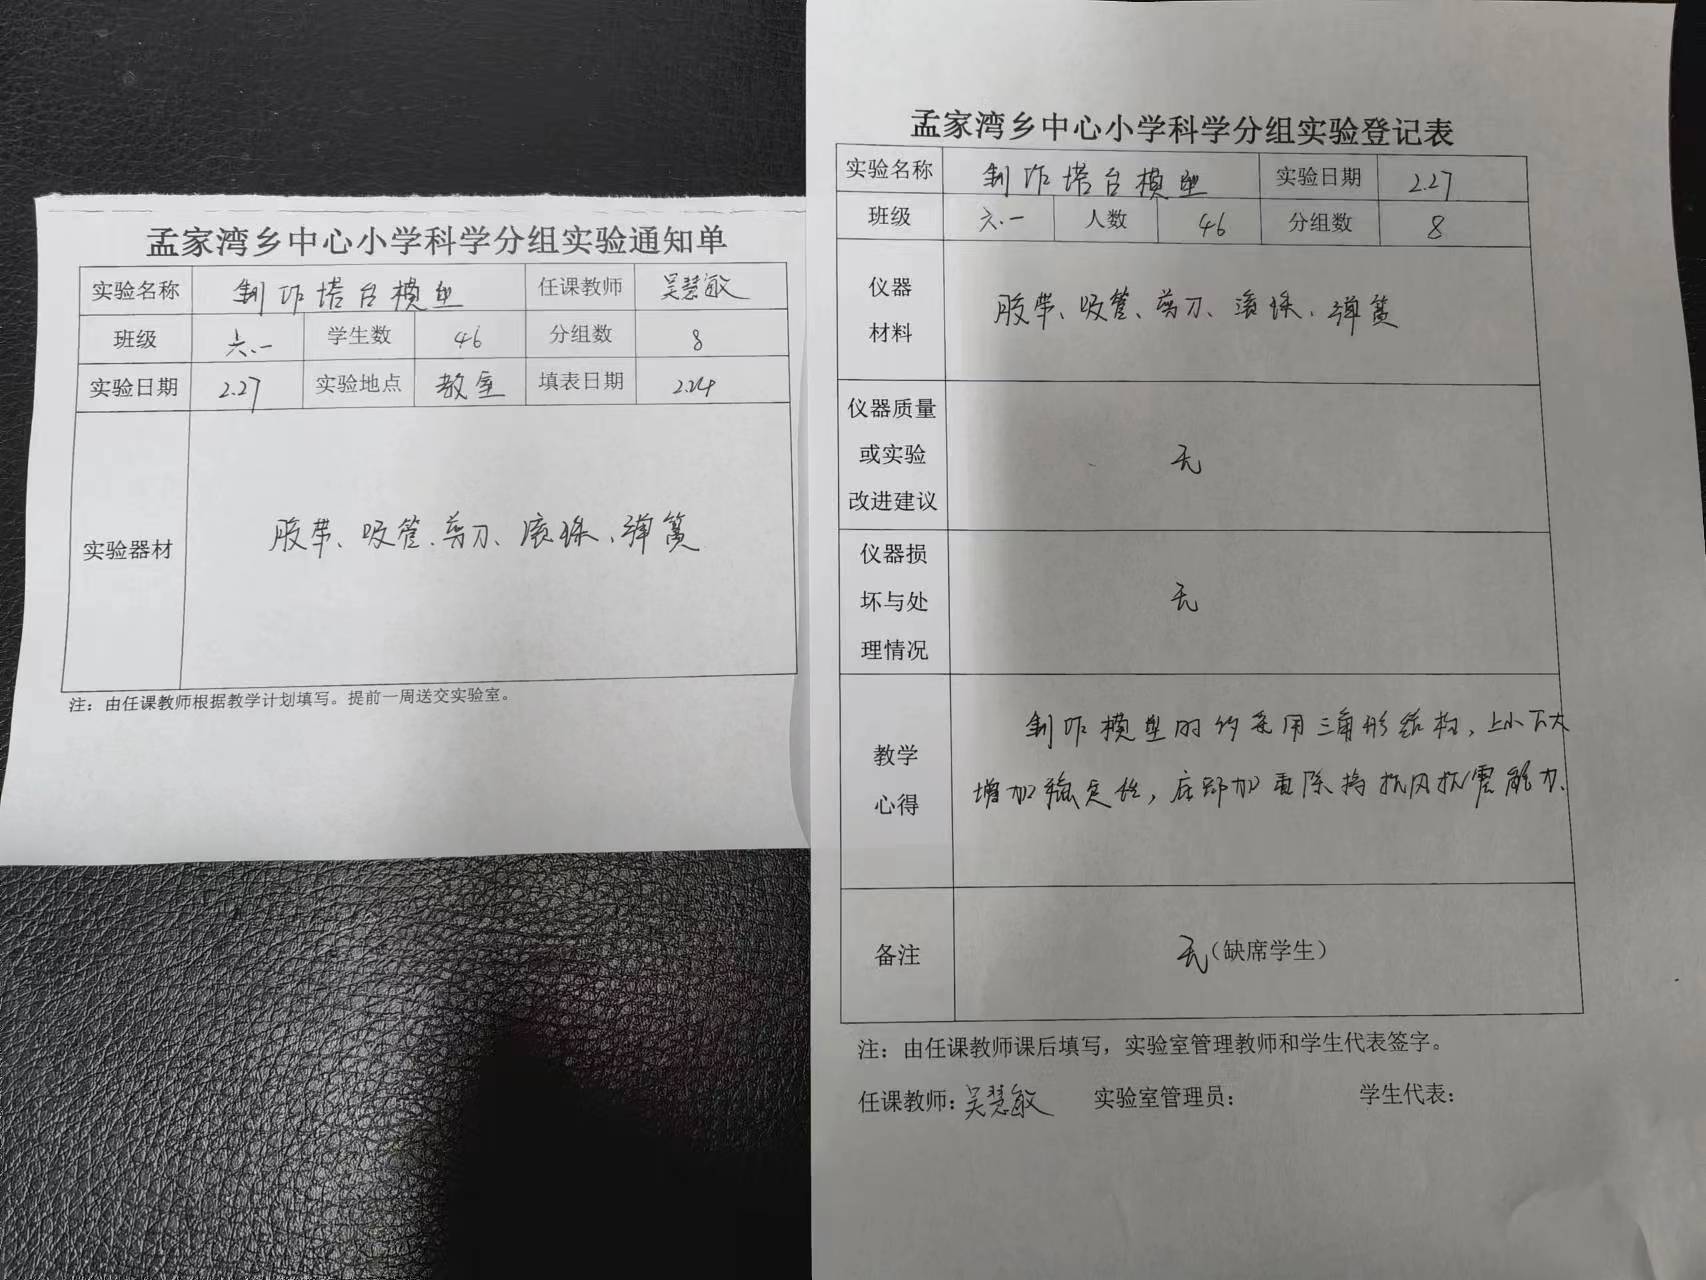 孟家湾乡中心小学科学分组实验通知单
实验名称 制作塔台模型 任课教师 吴慧敏
班级 六.一 学生数 46 分组数 8
实验日期 2.27 实验地点 教室 填表日期 2.24
实验器材 胶带、吸管、剪刀、滚珠、弹簧
注：由任课教师根据教学计划填写。提前一周送交实验室。
孟家湾乡中心小学科学分组实验登记表
实验名称 制作塔台模型 实验日期 2.27
班级 六.一 人数 46 分组数 8
仪器
材料
胶带、吸管、剪刀、滚珠、弹簧
仪器质量
或实验
改进建议
无
仪器损
坏与处
理情况
无
教学
心得
制作模型时 采用三角形结构，上小下大
增加稳定性，底部加重 抗风抗震能力.
备注 无(缺席学生)
注：由任课教师课后填写，实验室管理教师和学生代表签字。
任课教师: 吴慧敏 实验室管理员: 学生代表: